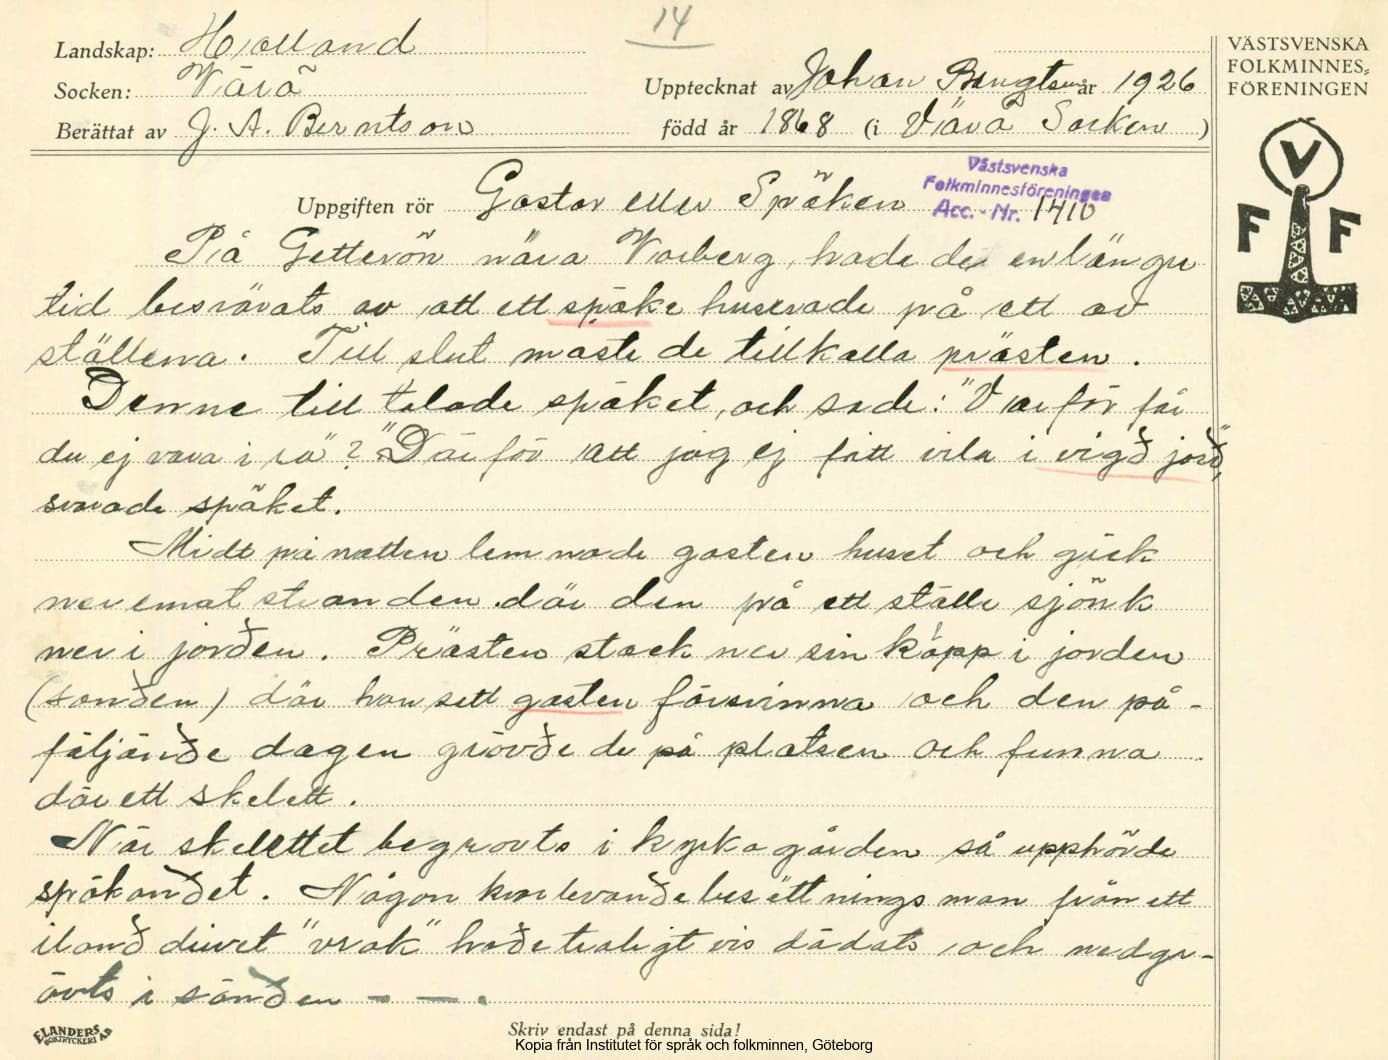 14
Landskap: Halland
Socken: Värö
Upptecknat av Johan Bengtson år 1926
Berättat av J. A. Berntson
född år 1868 (i Värö Socken)
VÄSTSVENSKA
FOLKMINNES-
FÖRENINGEN
V
F F
Västsvenska
Folkminnesföreningen
Acc. - Nr. 1410
Uppgiften rör Gastar eller Spöken
På Getterön nära Varberg, hade de en längre
tid besvärats av att ett spöke huserade på ett av
ställena. Till slut måste de tillkalla prästen.
Denne till talade spöket, och sade: "Varför får
du ej vara i ro"? "Därför att jag ej fått vila i vigd jord",
svarade spöket.
Midt på natten lemnade gasten huset och gick
ner emot stranden där den på ett ställe sjönk
ner i jorden. Prästen stack ner sin käpp i jorden
(sanden) där han sett gasten försvinna och den på-
följande dagen grövde de på platsen och funna
där ett skelett.
När skelettet begravts i kyrkogården så upphörde
spökandet. Någon kvarlevande besättningsman från ett
iland drivet "vrak" hade troligtvis dödats, och nedgr-
ävts i sanden - - .
ELANDERS
BOKTRYCKERI AB
Skriv endast på denna sida!
Kopia från Institutet för språk och folkminnen, Göteborg